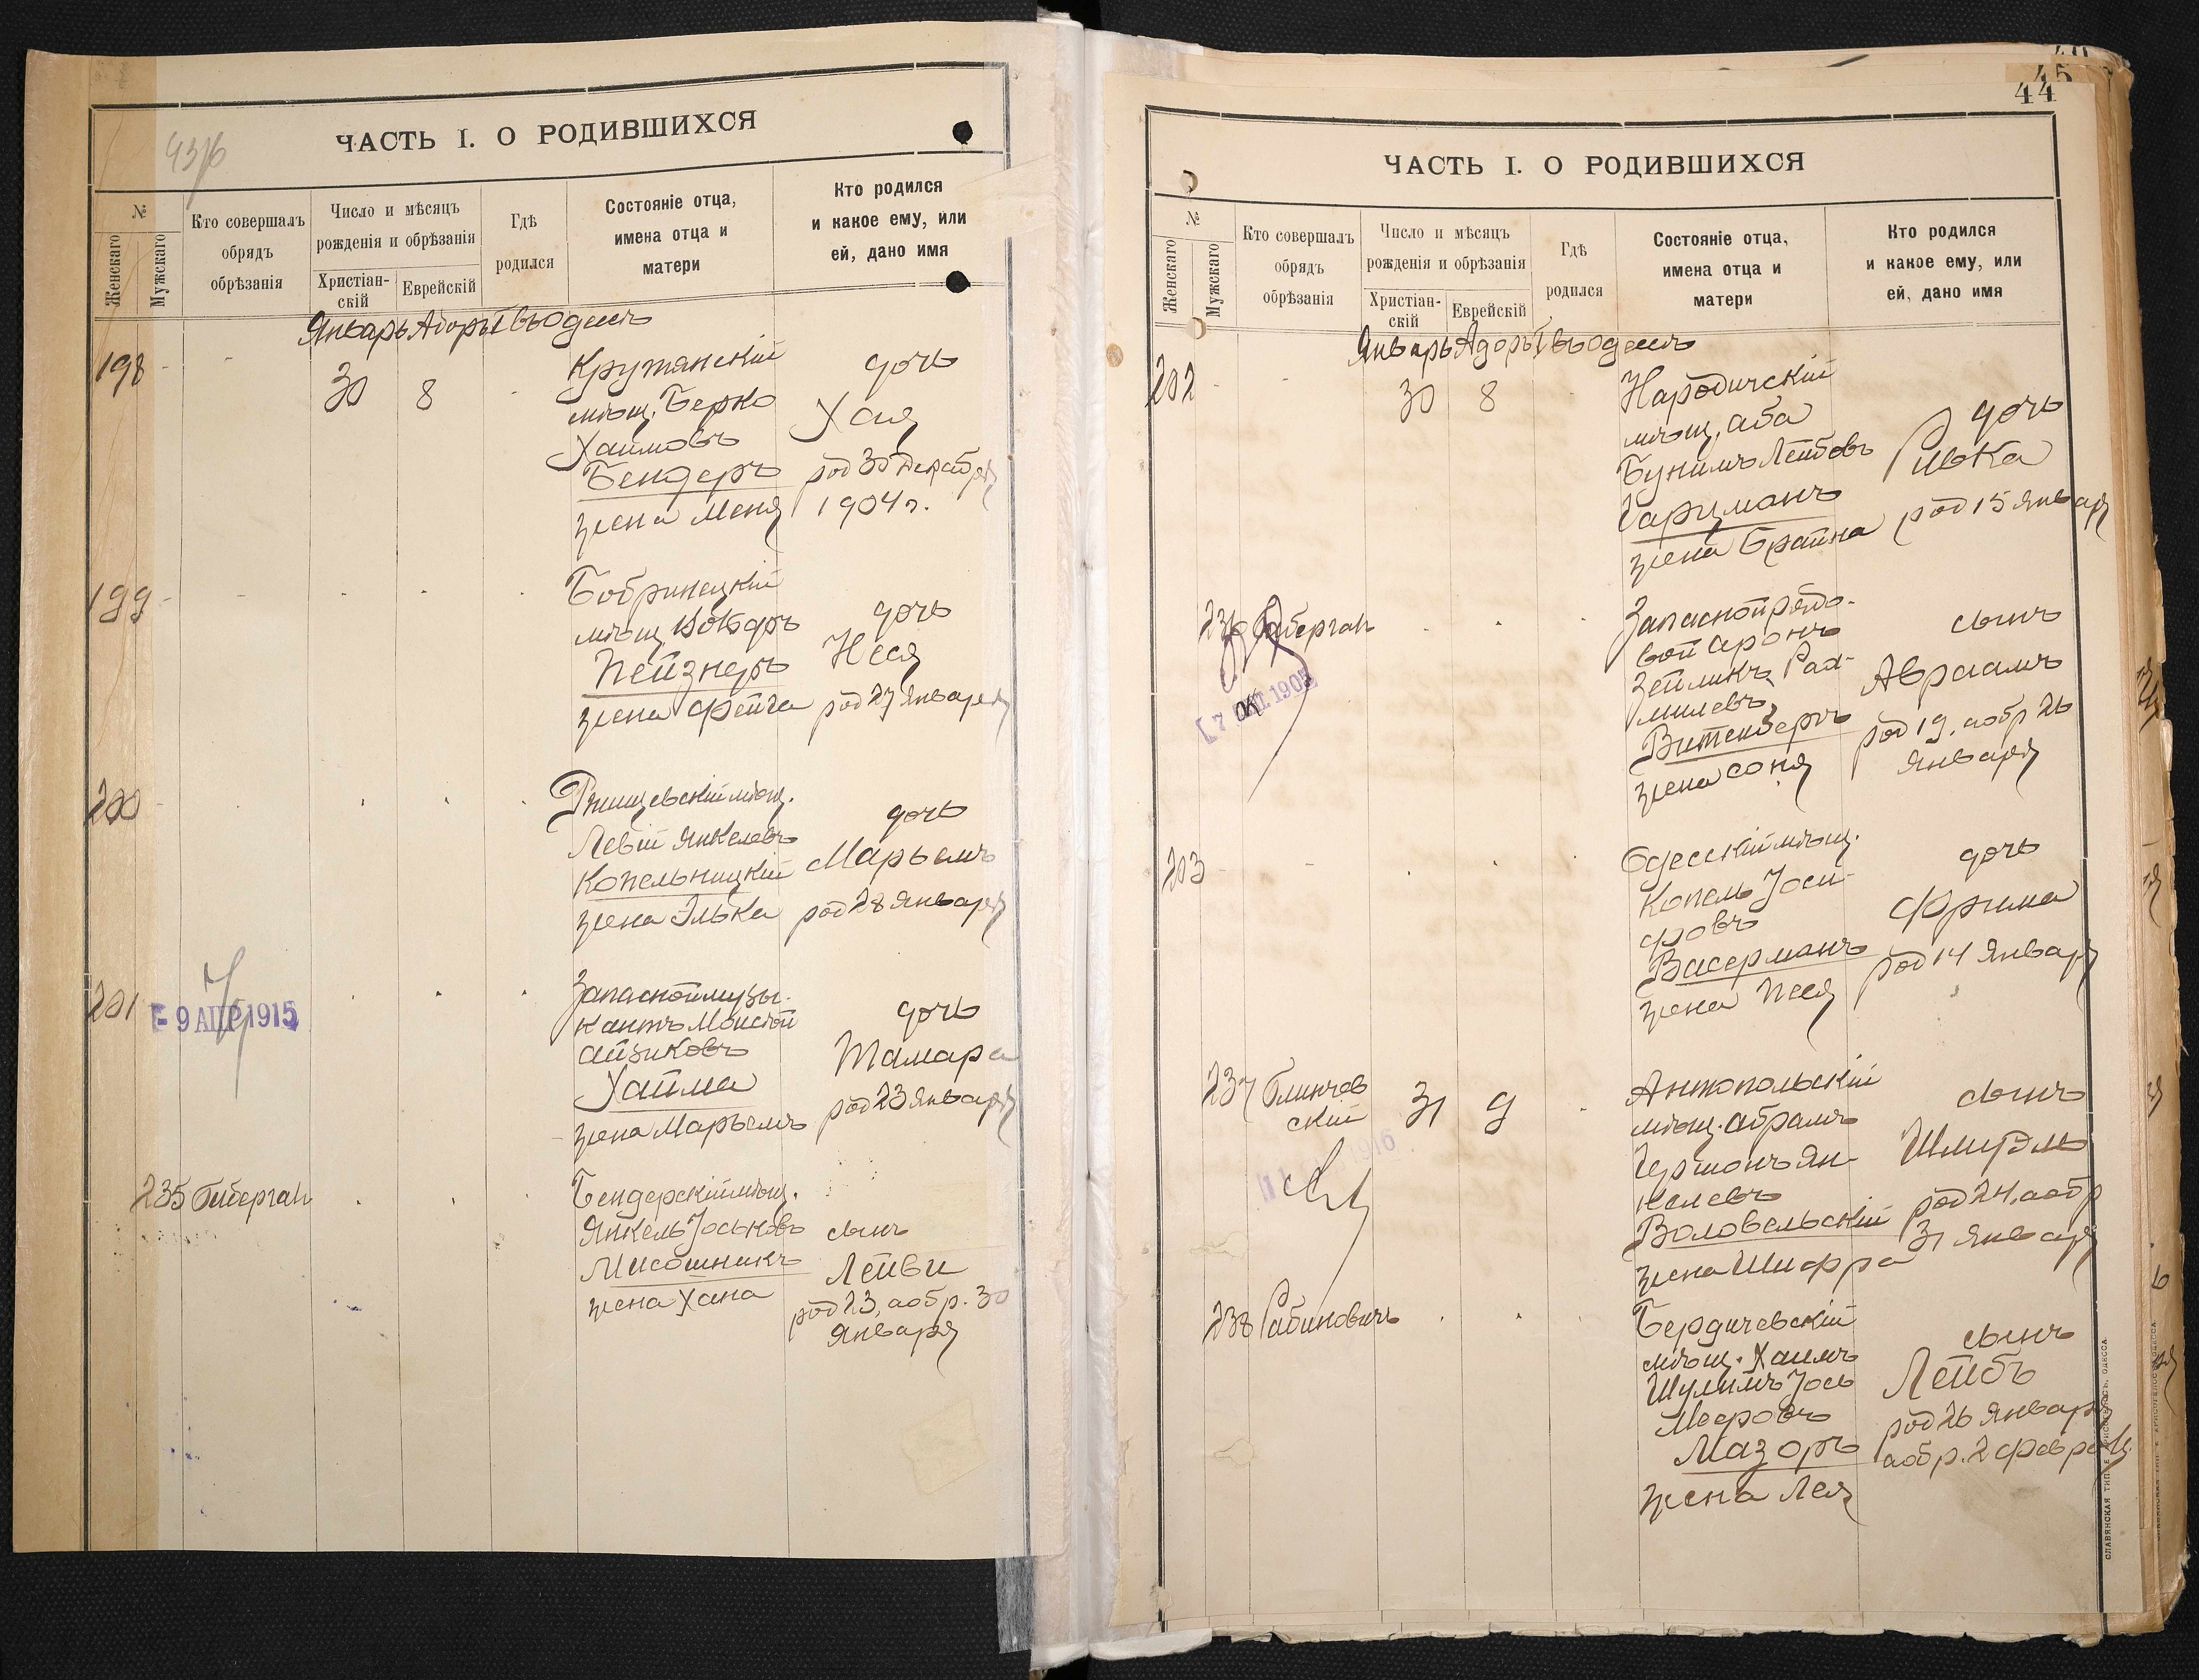 43/6
ЧАСТЬ I. О РОДИВШИХСЯ
№
Женскаго
Мужскаго
Кто совершалъ
обрядъ
обрѣзанія
Число и мѣсяцъ
рожденія и обрѣзанія
Христіан-
скій
Еврейскій
Гдѣ
родился
Состояніе отца,
имена отца и
матери
Кто родился
и какое ему, или
ей, дано имя
Январь Адоръ I въ Одессѣ
198
30
8
Крутянскій
мѣщ. Берко
Хаимовъ
Бендеръ
жена Меня
дочь
Хая
род 30 Декабря
1904 г.
199
Бобринецкій
мѣщ.
Пейзнеръ
жена Фейга
дочь
Неся
род 27 Января
200
Ржищевскій мѣщ.
Левій Янкелевъ
Копельницкій
жена Элька
дочь
Марьемъ
род 28 Января
201
9 АПР 1915
Запасной музы-
кантъ Моисей
Айзиковъ
Хайма
жена Марьемъ
дочь
Тамара
род 23 Января
235
Гиберган
Бендерскій мѣщ.
Янкель Іоськовъ
жена Хана
сынъ
Лейви
род 23, а обр. 30
Января
45
44
ЧАСТЬ I. О РОДИВШИХСЯ
№
Женскаго
Мужскаго
Кто совершалъ
обрядъ
обрѣзанія
Число и мѣсяцъ
рожденія и обрѣзанія
Христіан-
скій
Еврейскій
Гдѣ
родился
Состояніе отца,
имена отца и
матери
Кто родился
и какое ему, или
ей, дано имя
Январь Адоръ I въ Одессѣ
202
30
8
Народичскій
мѣщ. Аба
Бунимъ Лейбовъ
Гарцманъ
жена Брайна
дочь
Ривка
род 15 Января
236
Гиберган
Запасной рядо-
вой Аронъ
Зейликъ Рах-
милевъ
Витенбергъ
жена Соня
сынъ
Авраамъ
род 19, а обр 26
Января
203
Одесскій мѣщ.
Копель Іоси-
фовъ
Васерманъ
жена Песя
дочь
Фрима
род 14 Января
237
Блинчев
скій
31
9
Антопольскій
мѣщ. Абрамъ
Гершонъ Ян-
келевъ
Воловельскій
жена Шифра
сынъ
Шмуэль
род 24, а обр
31 Января
238
Рабиновичъ
Бердичевскій
мѣщ. Хаимъ
Шулимъ Іось
Мееровъ
Мазоръ
жена Лея
сынъ
Лейбъ
род 26 Января
а обр. 2 Февраля